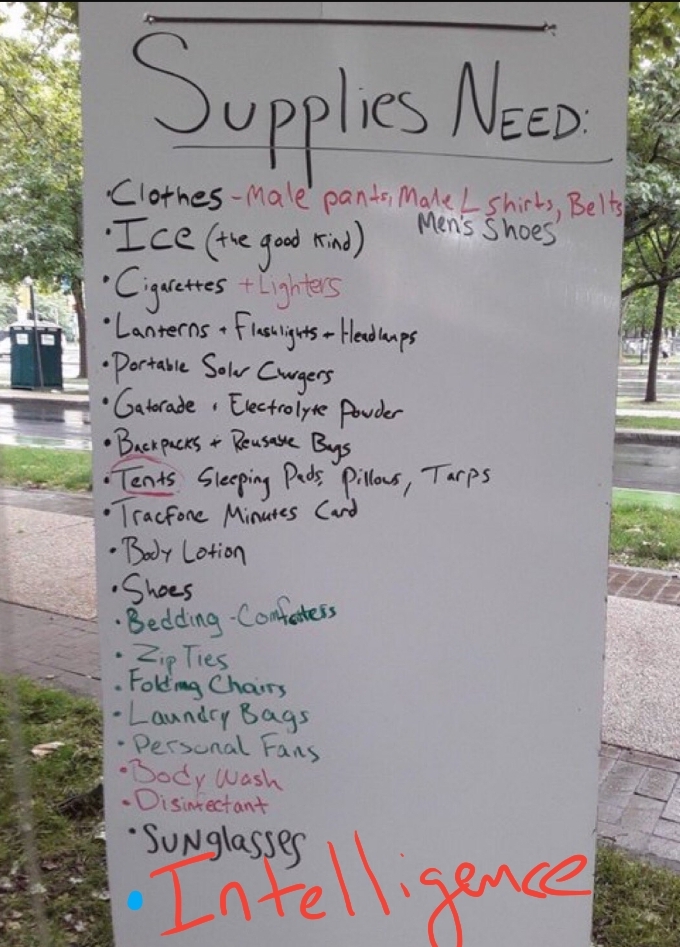 Supplies NEED:
·Clothes - Male pants, Male L shirts, Belts
Men's Shoes
·Ice (the good kind)
·Cigarettes + Lighters
·Lanterns + Flashlights + Headlamps
·Portable Solar Chargers
·Gatorade + Electrolyte Powder
·Backpacks + Reusable Bags
·Tents Sleeping Pads, Pillows, Tarps
·Tracfone Minutes Card
·Body Lotion
·Shoes
·Bedding - Comforters
·Zip Ties
·Folding Chairs
·Laundry Bags
·Personal Fans
·Body Wash
·Disinfectant
·Sunglasses
·Intelligence